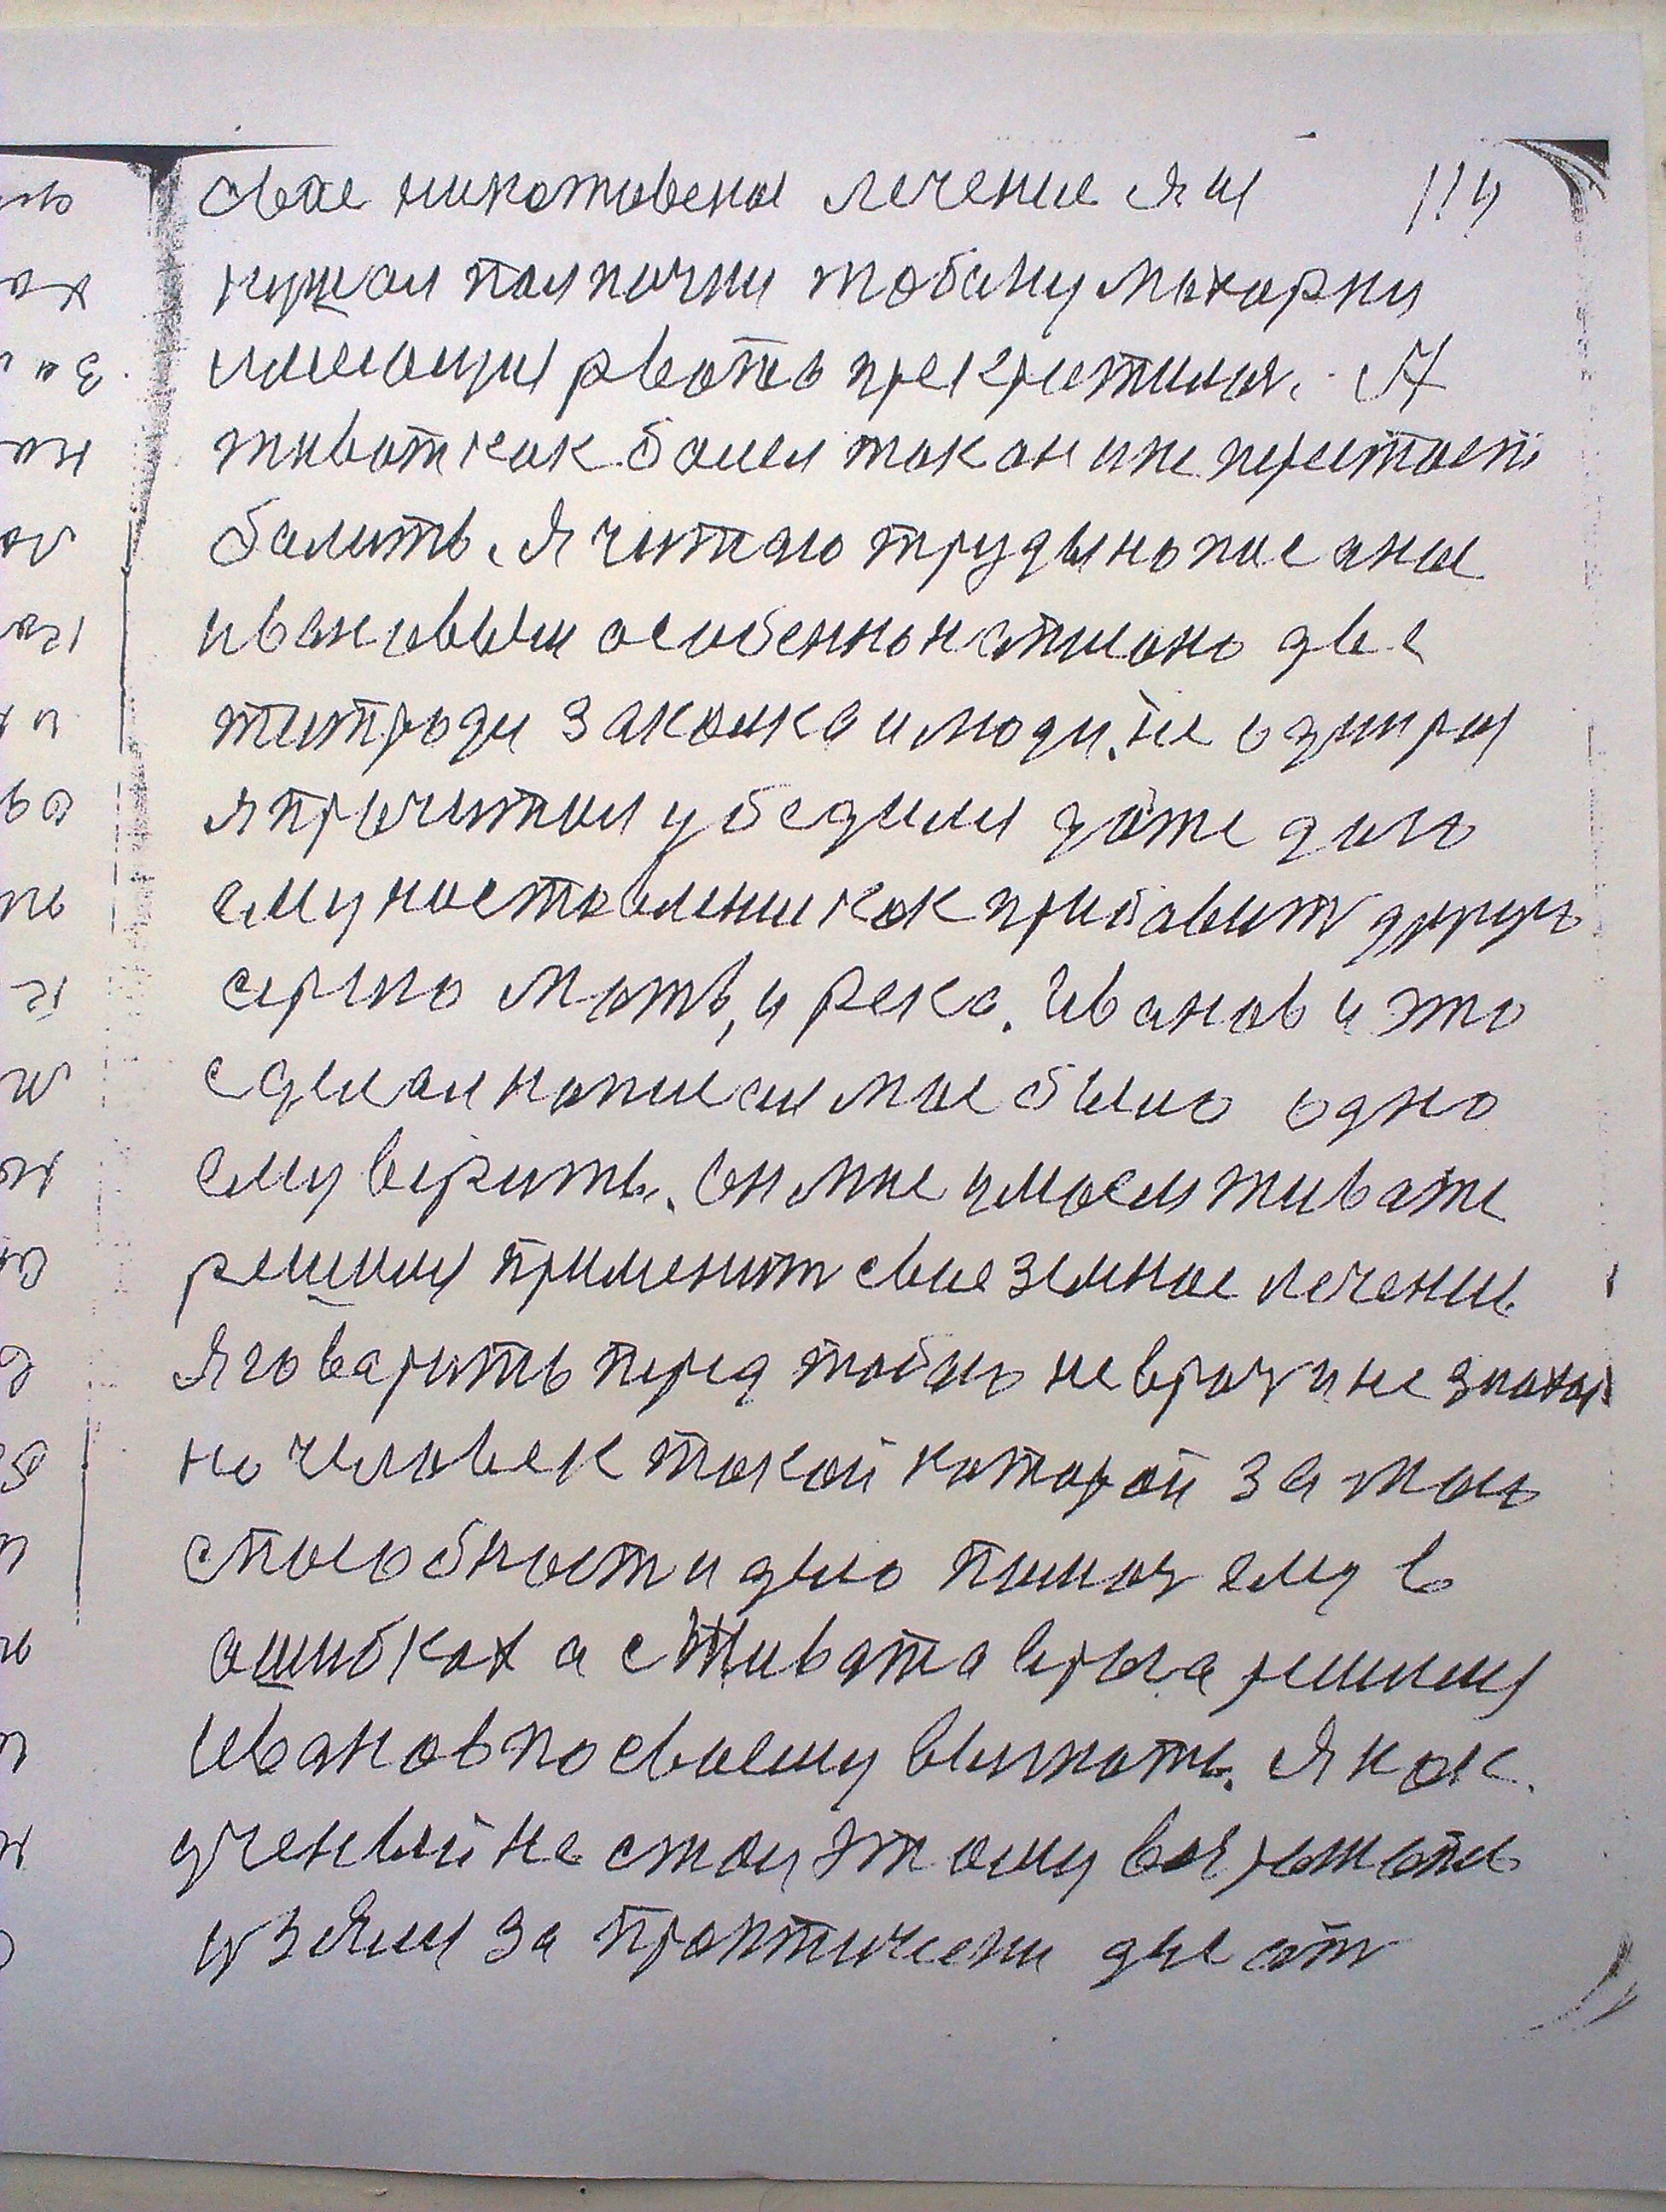 свое никотовеное лечение я и 114
кушал пол пачки тобаку махорки
рвота прекратилась. А
живот как болел так он и не перестает
балить. Я читаю труды написаные
Ивановым особенно написано две
титради закалка и люди, не один раз
я прочитал убедился даже дал
ему наставлении как прибавит другую
серию мать, и река. Иванов и это
сделал написал мне было одно
ему верить. Он мне у моем животе
решил применит свое земное лечение
Я говарить перед тобою не врач и не знахар
но человек такой каторай за мою
способность и дело помог ему в
ошибках а с живота врага решил
Иванов по своему выгнать. Я как
ученый не стал этому возражать
и взялся за практически две ст